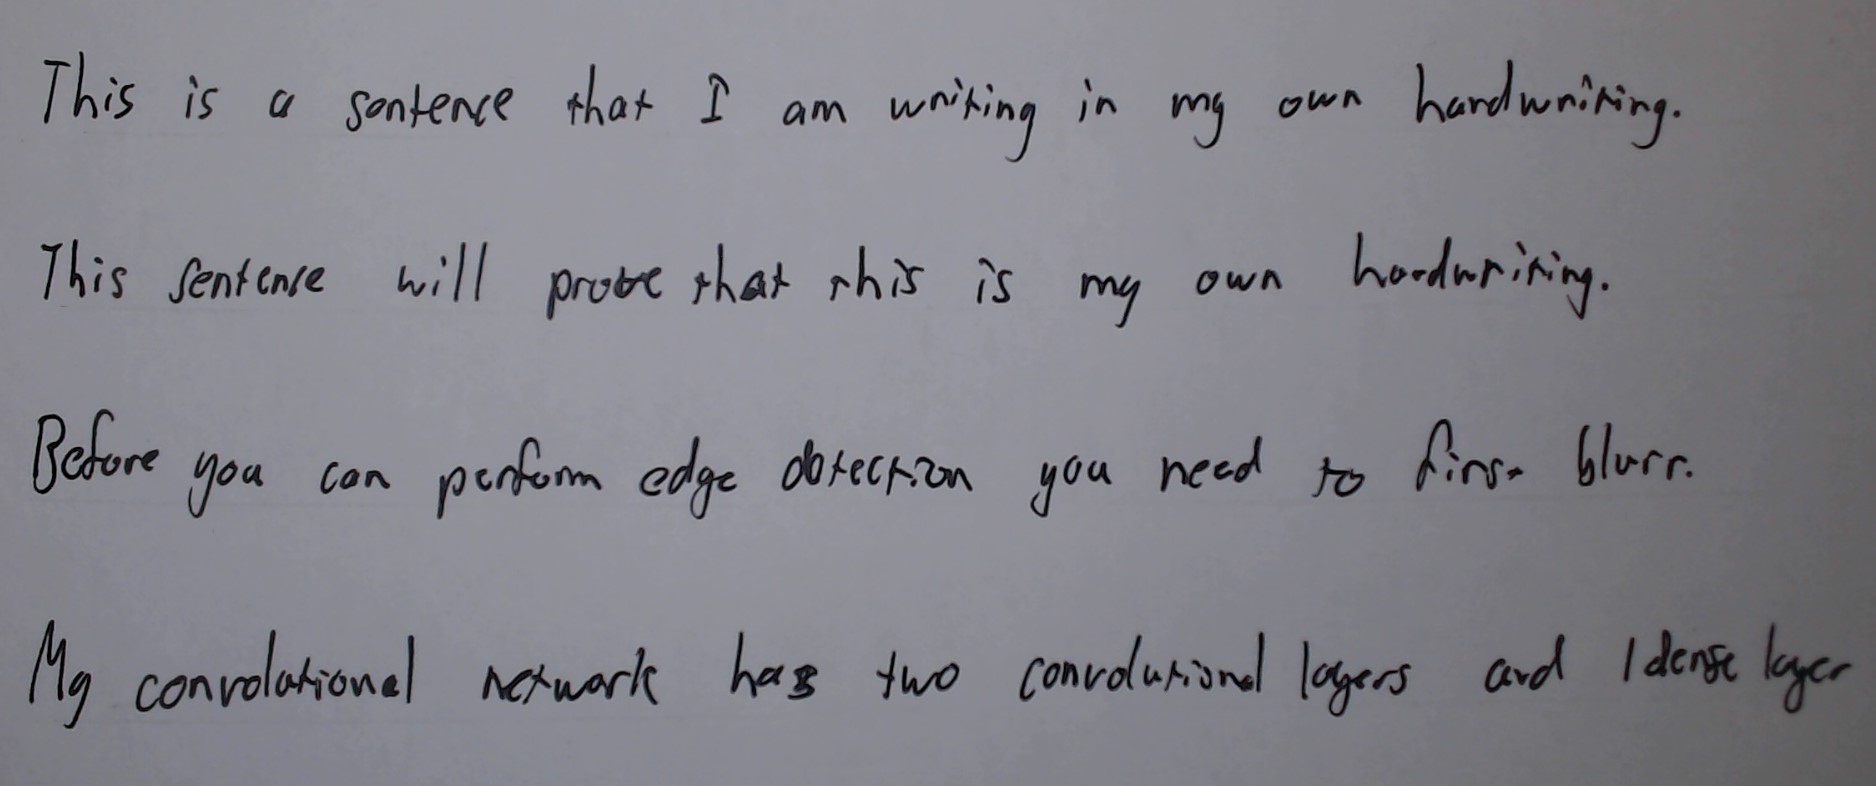 This is a sentence that I am writing in my own handwriting.
This sentence will prove that this is my own handwriting.
Before you can perform edge detection you need to first blurr.
My convolational network has two convolutional layers and 1 dense layer